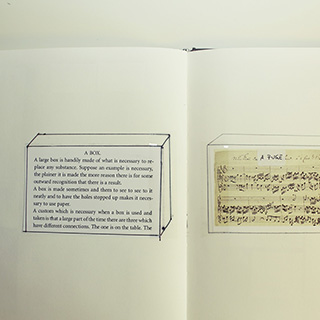 A BOX.
A large box is handily made of what is necessary to re-
place any substance. Suppose an example is necessary,
the plainer it is made the more reason there is for some
outward recognition that there is a result.
A box is made sometimes and them to see to see to it
neatly and to have the holes stopped up makes it neces-
sary to use paper.
A custom which is necessary when a box is used and
taken is that a large part of the time there are three which
have different connections. The one is on the table. The
A FUGE